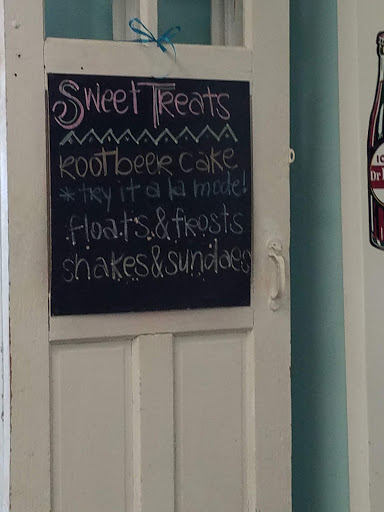 Sweet Treats
Rootbeer Cake
*try it a la mode!
floats & frosts
shakes & sundaes
Dr